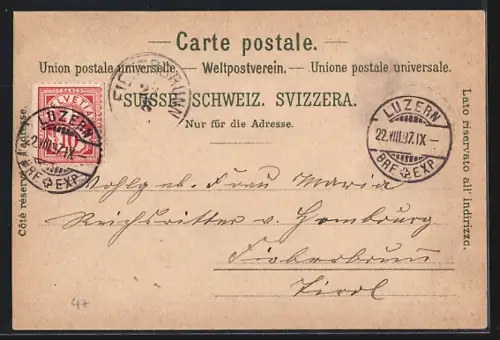 Carte postale.
Union postale universelle. — Weltpostverein. — Unione postale universale.
SUISSE. SCHWEIZ. SVIZZERA.
Nur für die Adresse.
Côté réservé à l'adresse.
Lato riservato all' indirizzo.
HELVETIA
10
LUZERN
22.VIII.97.IX
BRF. EXP.
FIEBERBRUNN
LUZERN
22.VIII.97.IX—
BRF. EXP.
Wohlgeb. Frau Maria
Reichsritter v. Homburg
Fieberbrunn
Tirol
47